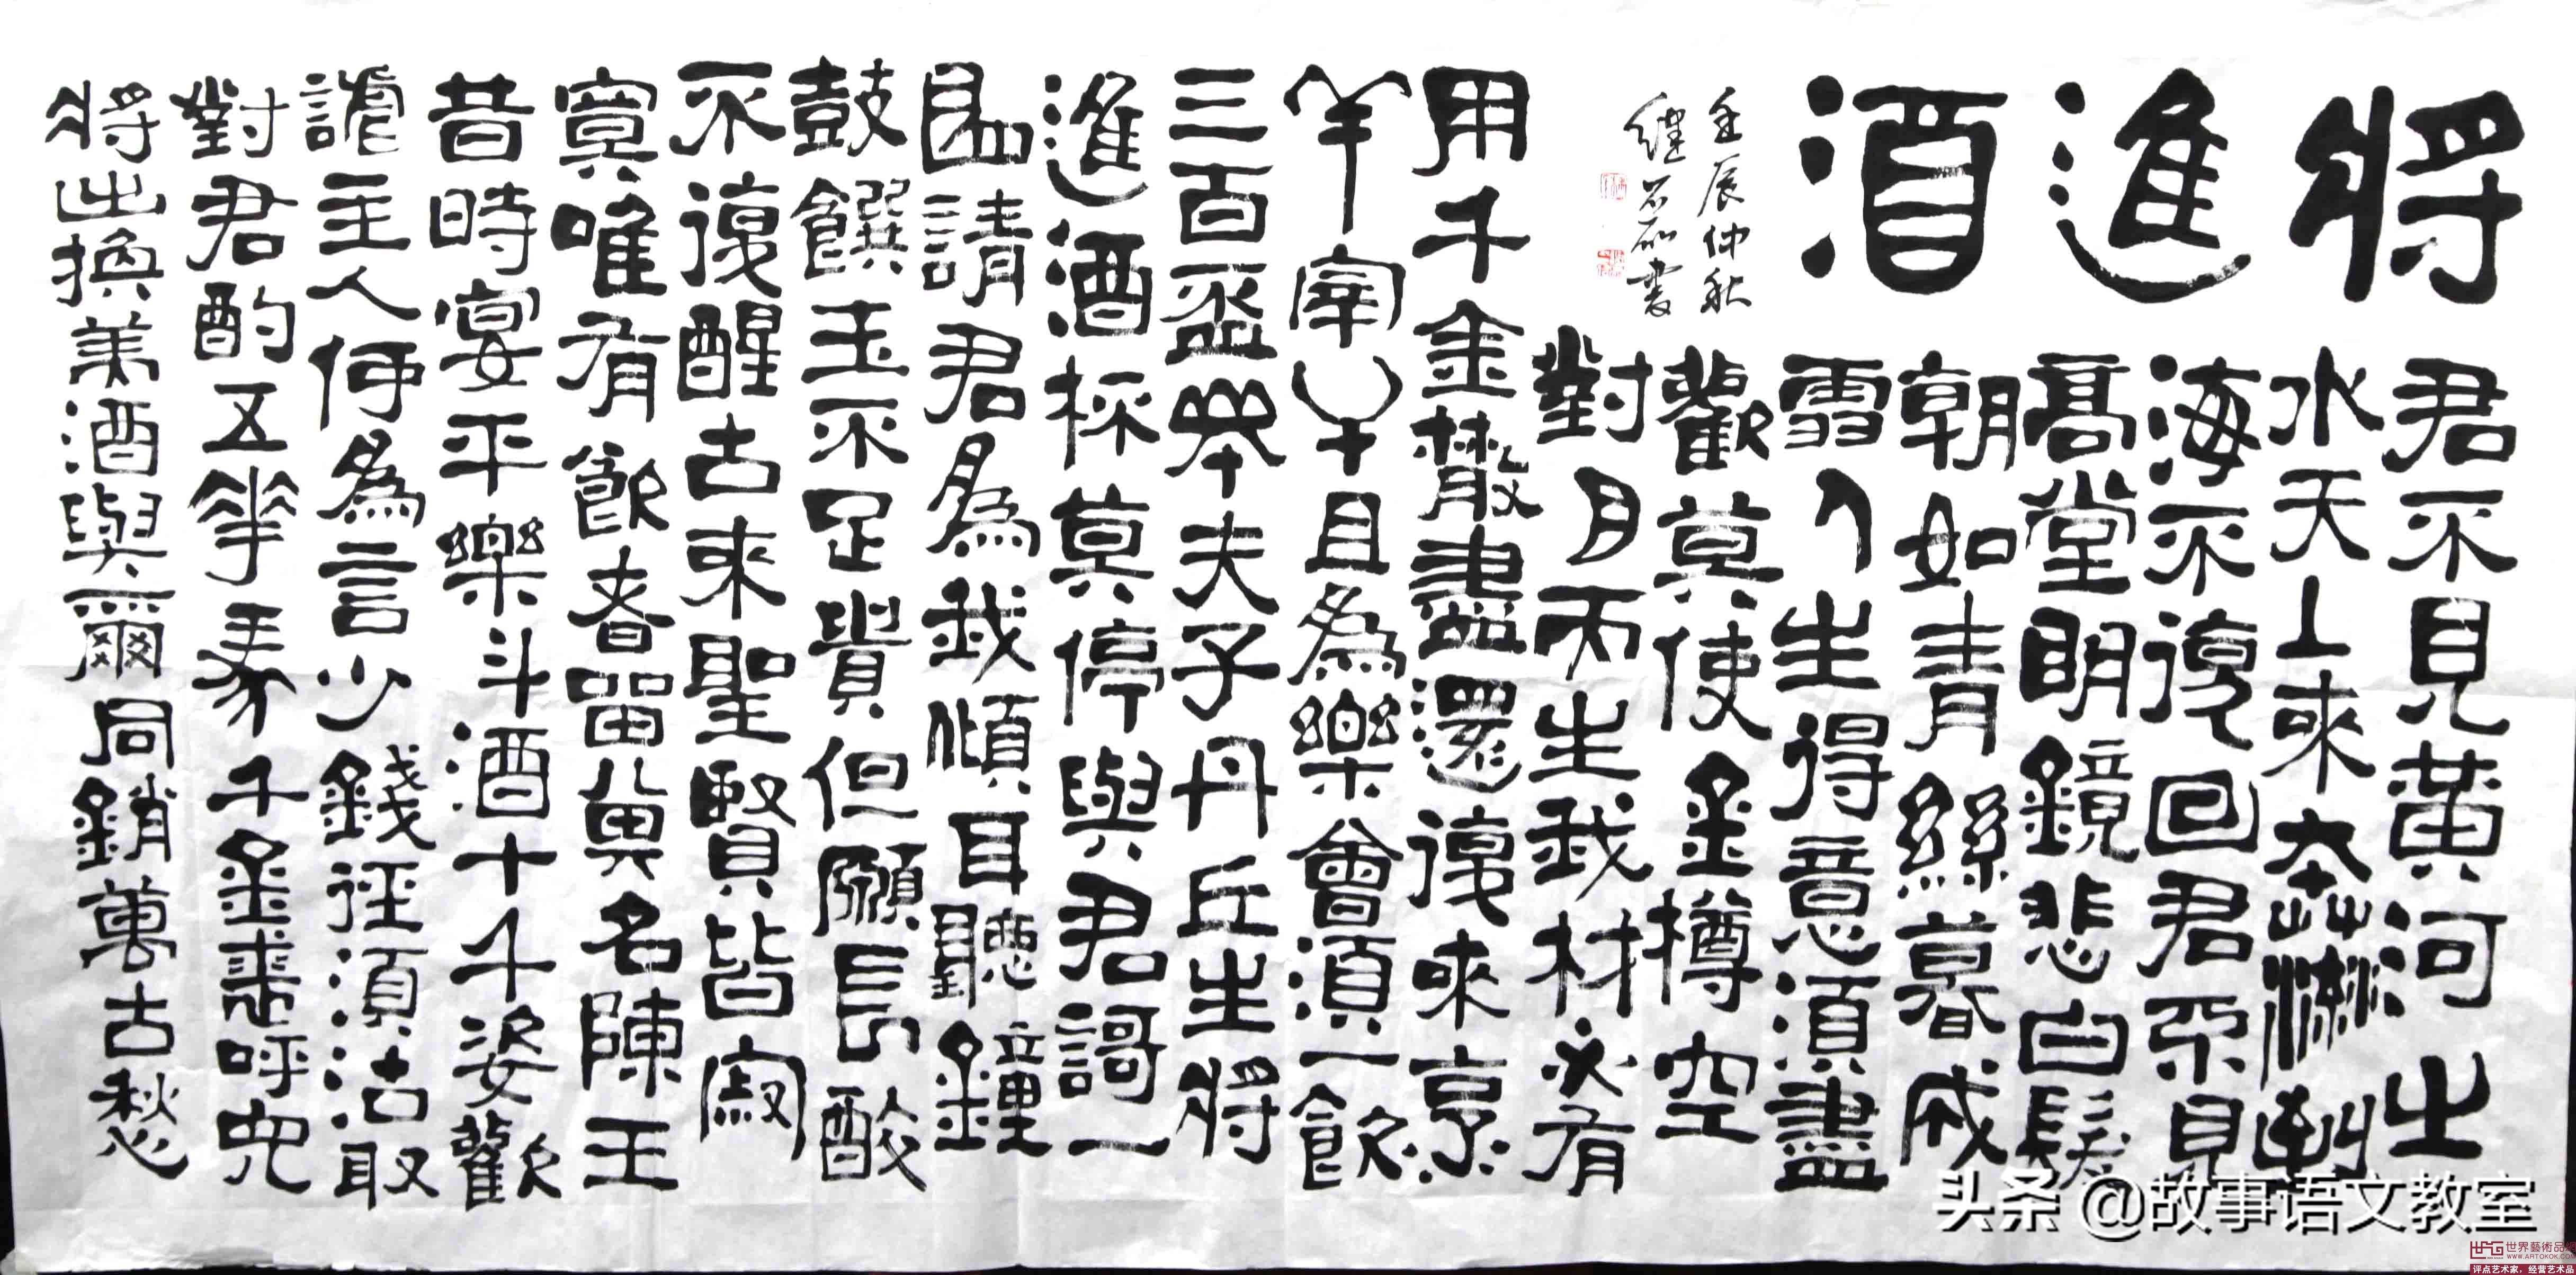 將進酒
君不見黃河之
水天上來奔流到
海不復回君不見
高堂明鏡悲白髮
朝如青絲暮成
雪人生得意須盡
歡莫使金樽空
對月天生我材必有
用千金散盡還復來烹
羊宰牛且為樂會須一飲
三百盃岑夫子丹丘生將
進酒杯莫停與君謌一
曲請君為我傾耳聽鐘
鼓饌玉不足貴但願長醉
不復醒古來聖賢皆寂
寞唯有飲者留其名陳王
昔時宴平樂斗酒十千姿歡
謔主人何為言少錢徑須沽取
對君酌五花馬千金裘呼兒
將出換美酒與爾同銷萬古愁
壬辰仲秋
書
头条 @故事语文教室
世界藝術品
WWW.ARTOKOK.COM
评点艺术家，经营艺术品